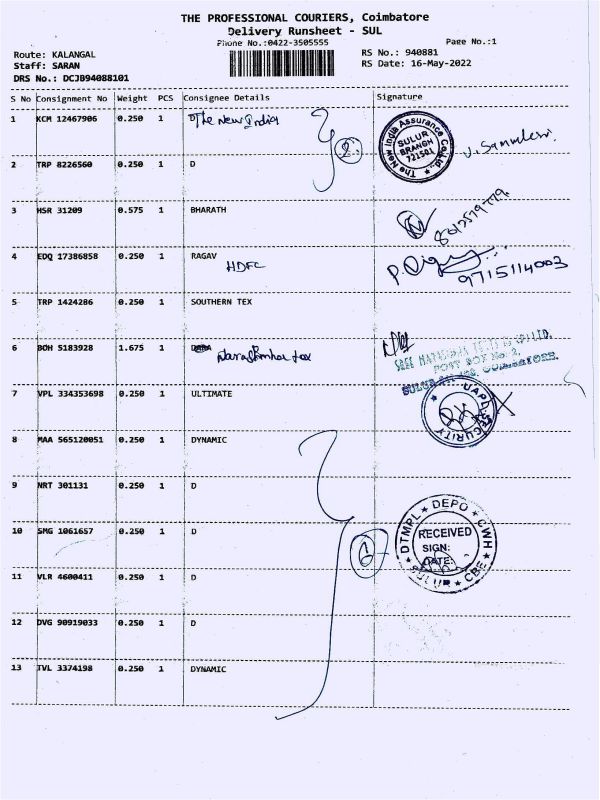 THE PROFESSIONAL COURIERS, Coimbatore
Delivery Runsheet - SUL
Phone No.:0422-3505555
Page No.:1
Route: KALANGAL
RS No.: 940881
Staff: SARAN
RS Date: 16-May-2022
DRS No.: DCJB94088101
S No Consignment No Weight PCS Consignee Details Signature
1 KCM 12467906 0.250 1 The New India
2
The New India Assurance Co.Ltd.
SULUR
BRANCH
721501
2 TRP 8226560 0.250 1 D
3 HSR 31209 0.575 1 BHARATH
4 EDQ 17386858 0.250 1 RAGAV
HDFC
9715114003
5 TRP 1424286 0.250 1 SOUTHERN TEX
6 BOH 5183928 1.675 1
POST BOX No. 2,
7 VPL 334353698 0.250 1 ULTIMATE
SECURITY
8 MAA 565120051 0.250 1 DYNAMIC
9 NRT 301131 0.250 1 D
10 SMG 1061657 0.250 1 D
6
DTMPL ★ DEPO ★ CWH
RECEIVED
SIGN:
DATE:
SULUR ★ CBE
11 VLR 4600411 0.250 1 D
12 DVG 90919033 0.250 1 D
13 TVL 3374198 0.250 1 DYNAMIC